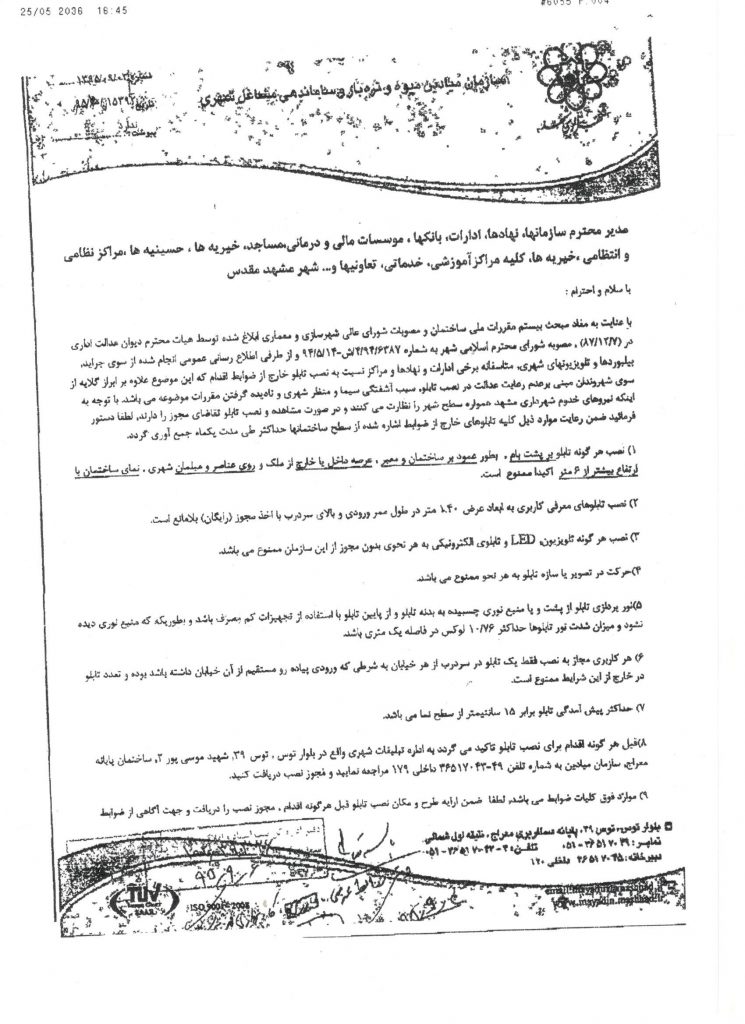 25/05 2036 16:45
#6055 P.004
سازمان میادین میوه و تره بار و ساماندهی مشاغل شهری
مدیر محترم سازمانها، نهادها، ادارات، بانکها ، موسسات مالی و درمانی،مساجد، خیریه ها ، حسینیه ها ،مراکز نظامی
و انتظامی ،خیریه ها، کلیه مراکز آموزشی، خدماتی، تعاونیها و... شهر مشهد مقدس
با سلام و احترام :
با عنایت به مفاد مبحث بیستم مقررات ملی ساختمان و مصوبات شورای عالی شهرسازی و معماری ابلاغ شده توسط هیات محترم دیوان عدالت اداری
در (۸۷/۱۲/۷) ، مصوبه شورای محترم اسلامی شهر به شماره ۴/۹۴/۶۳۸۷/ش-۹۴/۵/۱۴ و از طرفی اطلاع رسانی عمومی انجام شده از سوی جراید،
بیلبوردها و تلویزیونهای شهری، متاسفانه برخی ادارات و نهادها و مراکز نسبت به نصب تابلو خارج از ضوابط اقدام که این موضوع علاوه بر ابراز گلایه از
سوی شهروندان مبنی برعدم رعایت عدالت در نصب تابلو، سبب آشفتگی سیما و منظر شهری و نادیده گرفتن مقررات موضوعه می باشد. با توجه به
اینکه نیروهای خدوم شهرداری مشهد همواره سطح شهر را نظارت می کنند و در صورت مشاهده و نصب تابلو تقاضای مجوز را دارند، لطفا دستور
فرمائید ضمن رعایت موارد ذیل کلیه تابلوهای خارج از ضوابط اشاره شده از سطح ساختمانها حداکثر طی مدت یکماه جمع آوری گردد.
۱) نصب هر گونه تابلو بر پشت بام ، بطور عمود بر ساختمان و معبر ، عرصه داخل یا خارج از ملک و روی عناصر و مبلمان شهری ، نمای ساختمان با
ارتفاع بیشتر از ۶ متر اکیدا ممنوع است.
۲) نصب تابلوهای معرفی کاربری به ابعاد عرض ۱.۴۰ متر در طول ممر ورودی و بالای سردرب با اخذ مجوز (رایگان) بلامانع است.
۳) نصب هر گونه تلویزیون، LED و تابلوی الکترونیکی به هر نحوی بدون مجوز از این سازمان ممنوع می باشد.
۴)حرکت در تصویر یا سازه تابلو به هر نحو ممنوع می باشد.
۵)نور پردازی تابلو از پشت و یا منبع نوری چسبیده به بدنه تابلو و از پایین تابلو با استفاده از تجهیزات کم مصرف باشد و بطوریکه که منبع نوری دیده
نشود و میزان شدت نور تابلوها حداکثر ۱۰/۷۶ لوکس در فاصله یک متری باشد.
۶) هر کاربری مجاز به نصب فقط یک تابلو در سردرب از هر خیابان به شرطی که ورودی پیاده رو مستقیم از آن خیابان داشته باشد بوده و تعدد تابلو
در خارج از این شرایط ممنوع است.
۷) حداکثر پیش آمدگی تابلو برابر ۱۵ سانتیمتر از سطح نما می باشد.
۸)قبل هر گونه اقدام برای نصب تابلو تاکید می گردد به اداره تبلیغات شهری واقع در بلوار توس ، توس ۳۹، شهید موسی پور ۲، ساختمان پایانه
معراج، سازمان میادین به شماره تلفن ۴۹-۳۶۵۱۷۰۴۳ داخلی ۱۷۹ مراجعه نمایید و مجوز نصب دریافت کنید.
۹) موارد فوق کلیات ضوابط می باشد، لطفا ضمن ارایه طرح و مکان نصب تابلو قبل هرگونه اقدام ، مجوز نصب را دریافت و جهت آگاهی از ضوابط
بلوار توس، توس ۳۹، پایانه مسافربری معراج، طبقه اول شمالی
نمابر : ۰۵۱-۳۶۵۱۷۰۳۹
دبیرخانه : ۳۶۵۱۷۰۴۵ داخلی ۱۲۰
TUV
ISO 9001:2008